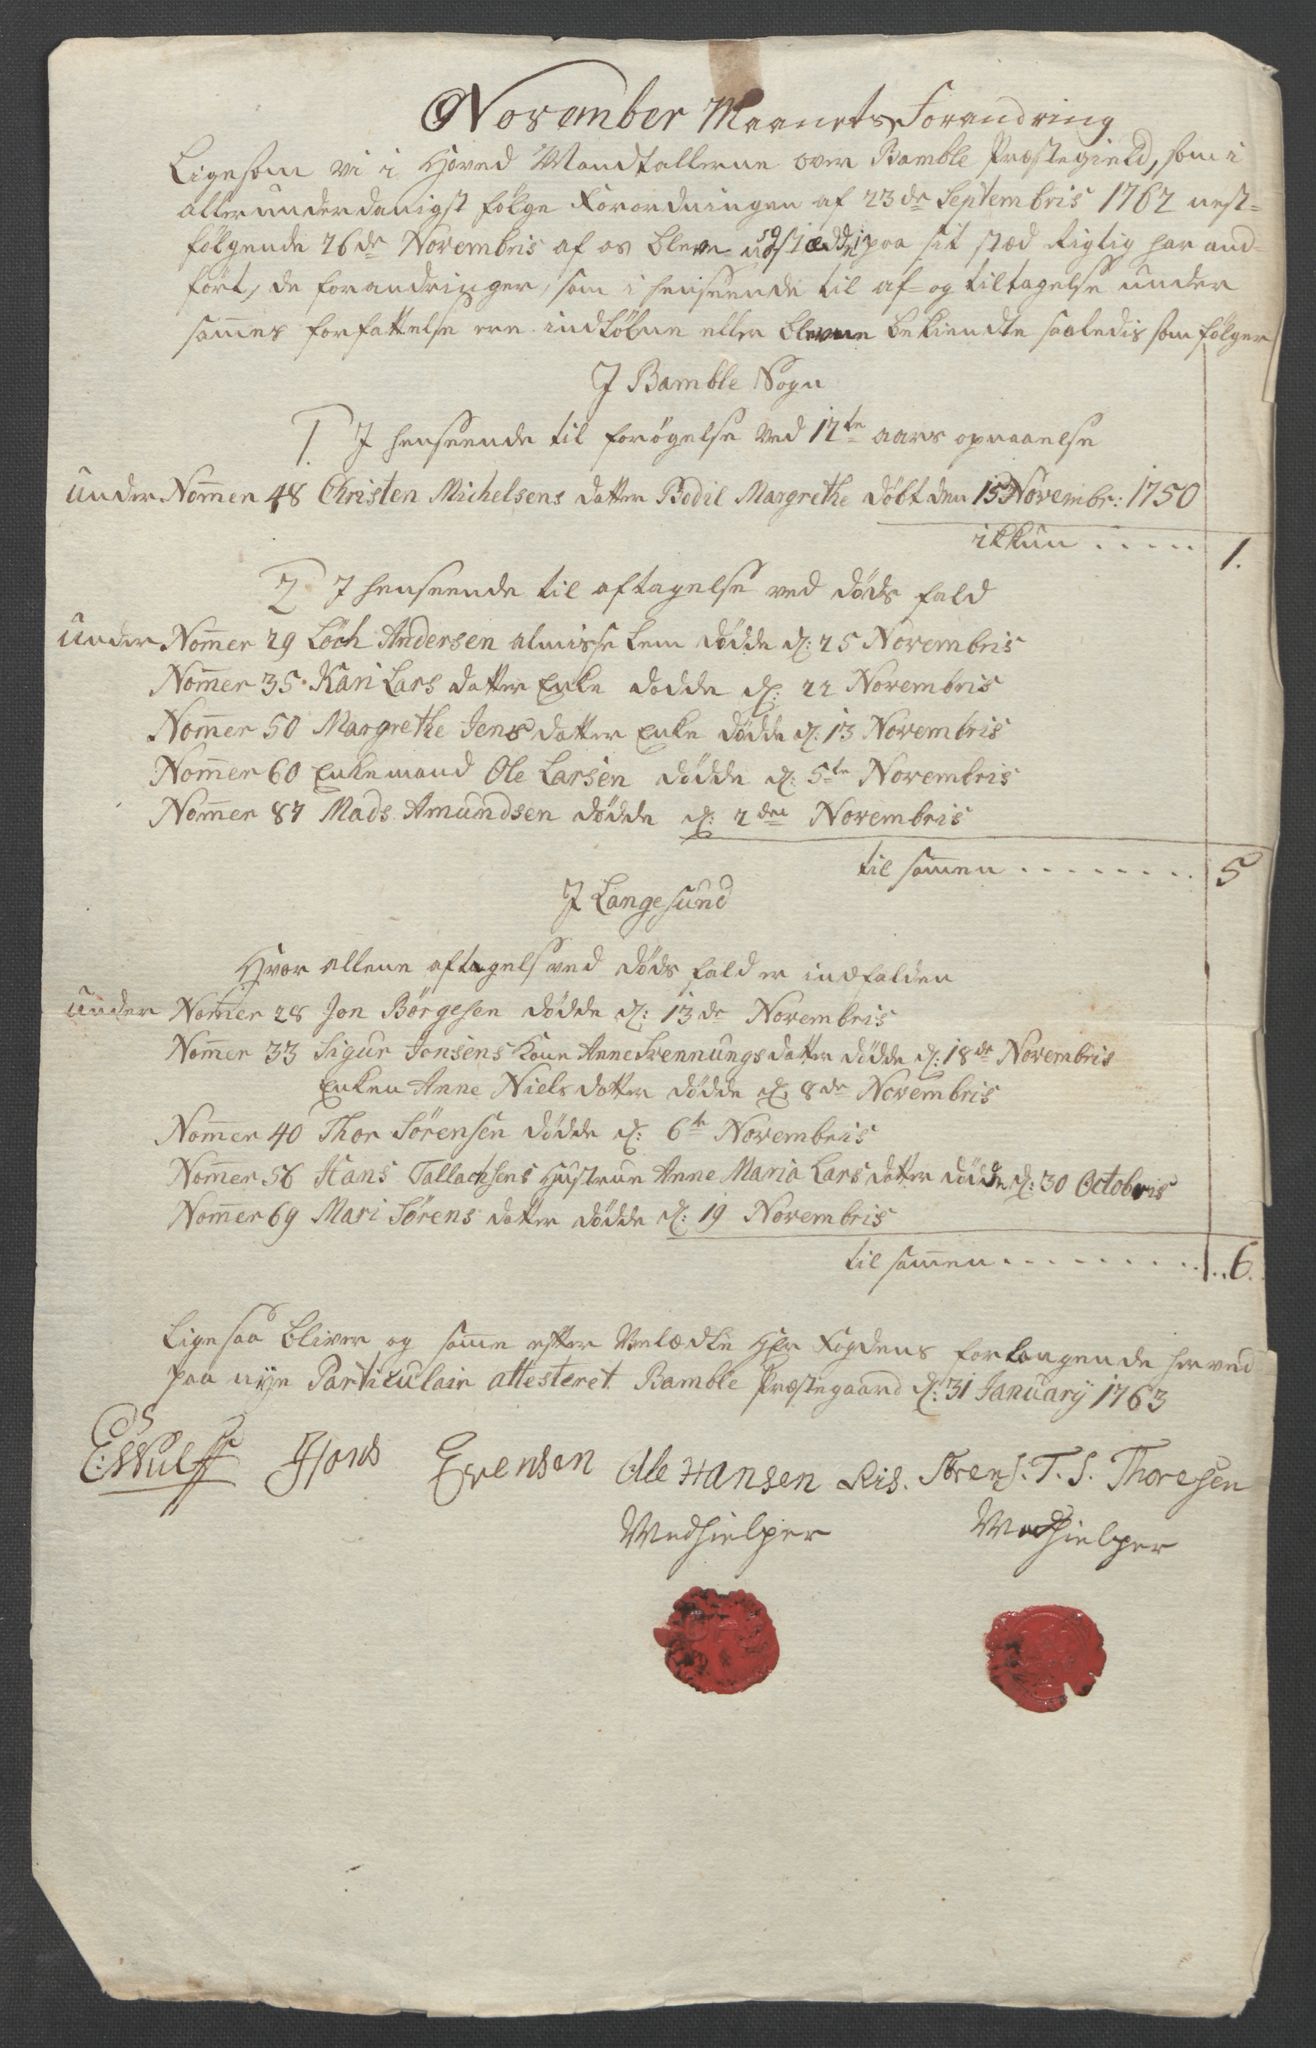 November Maanets Forandring
Ligesom vi i Hoved Mandtallerne over Bamble Præstegield, som i
allerunderdanigst følge Forordningen af 23de Septembris 1762 nest-
følgende 26de Novembris af os bleve udstædde, paa sit stæd Rigtig har and-
ført, de forandringer, som i henseende til af- og tiltagelse under
sam̅es forfattelse ere indløbne eller blevne bekiendte saaledis som følger
J Bamble Sogn
1. J henseende til forøgelse ved 12te aars opnaaelse
Under Nom̅er 48 Christen Michelsens datter Bodil Margrethe døbt den 15 Novembr: 1750
ikkun ..... 1.
2 J henseende til aftagelse ved døds fald
Under Nom̅er 29 Loch Andersen almisse lem dødde d: 25 Novembris
Nom̅er 35 Kari Lars datter Enke dødde d: 22 Novembris
Nom̅er 50 Margrethe Jens datter Enke dødde d: 13 Novembris
Nom̅er 60 Enkemand Ole Larsen dødde d: 5te Novembris
Nom̅er 87 Mads Amundsen dødde d: 2den Novembris
til sam̅en ........ 5
J Langesund
Hvor allene aftagels ved døds fald er indfalden
Under Nom̅er 28 Jon Børgesen dødde d: 13de Novembris
Nom̅er 33 Sigur Jonsens Kone Anne Svennungs datter dødde d: 18de Novembris
Enken Anne Niels datter dødde d: 8de Novembris
Nom̅er 40 Thor Sørensen dødde d: 6te Novembris
Nom̅er 56 Hans Tallachsens Hustrue Anne Maria Lars datter dødde d: 30 Octobris
Nom̅er 69 Mari Sørens datter dødde d: 19 Novembris
til sam̅en ......... 6.
Ligesaa bliver og sam̅e efter Velædle Hr Fogdens forlangende herved
paa nye Particulair attesteret. Bamble Præstegaard d: 31 January 1763
E: Wulff Evensen Ole Hansen Ris. Sørens. T. S. Thoresen
Medhielper Medhielper